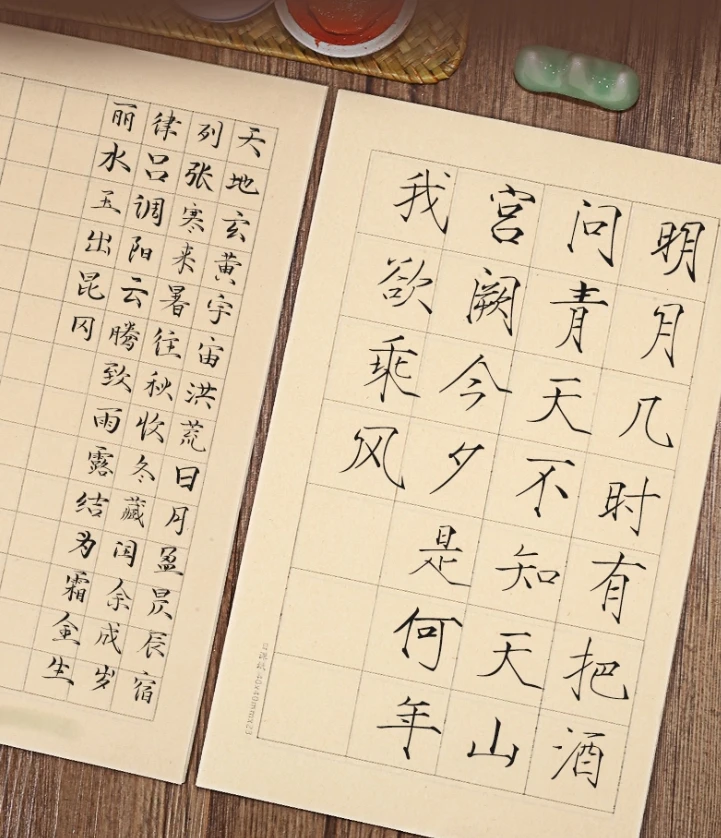 明月几时有把酒
问青天不知天山
宫阙今夕是何年
我欲乘风
天地玄黄宇宙洪荒日月盈昃辰宿
列张寒来暑往秋收冬藏闰余成岁
律吕调阳云腾致雨露结为霜金生
丽水玉出昆冈